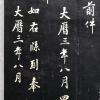 前件
大曆三年八月
如右謹刻奉
大曆三年八月